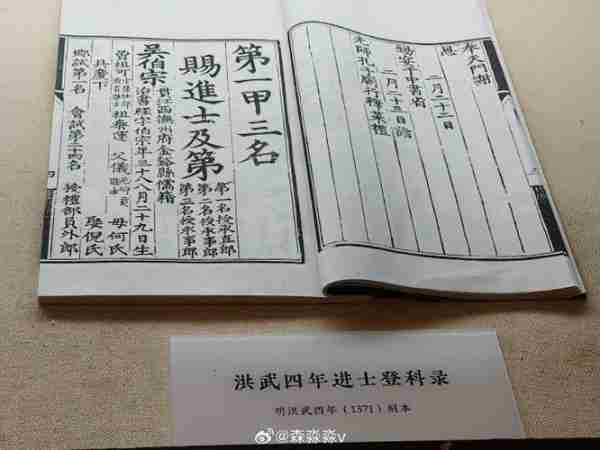 奉天門謝
恩
二月二十二日
錫宴于中書省
二月二十三日詣
先師孔子廟行釋菜禮
第一甲三名
賜進士及第
第一名授承直郎
第二名授承事郎
第三名授承事郎
吳伯宗
貫江西撫州府金谿縣儒籍
治書經字伯宗年三十八八月二十九日生
曾祖可 祖泰運 父儀 母何氏
具慶下 娶倪氏
鄉試第一名 會試第二十四名 授禮部員外郎
洪武四年进士登科录
明洪武四年（1371）刻本
@森淼淼v